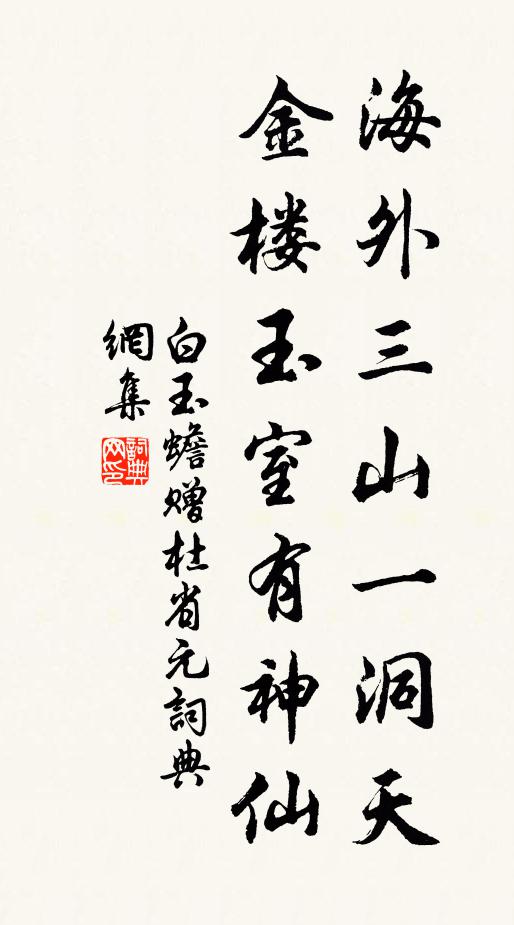 海外三山一洞天
金楼玉室有神仙
白玉蟾赠杜省元詞典
網集
詞典網印